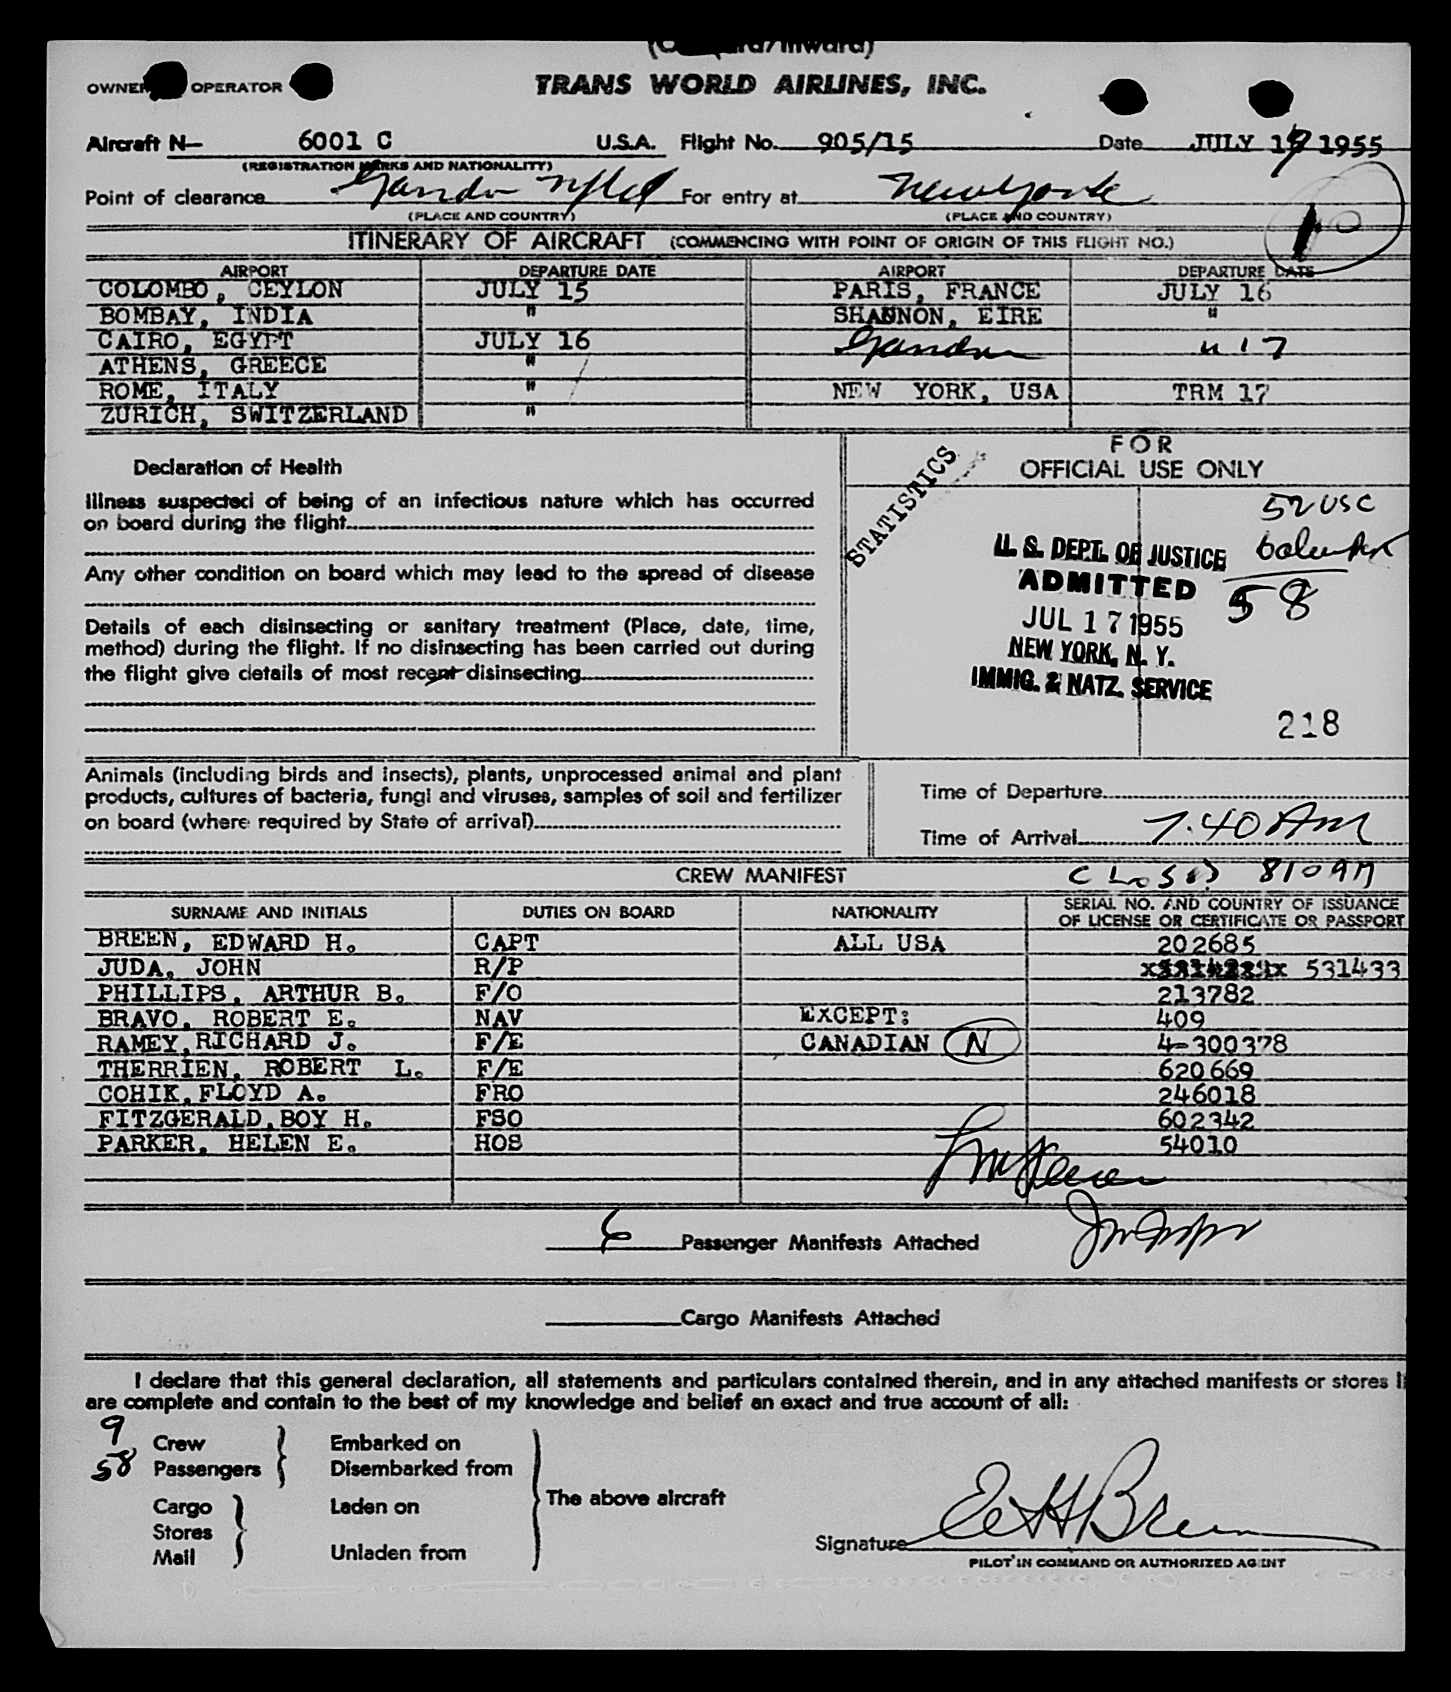 TRANS WORLD AIRLINES, INC.
OPERATOR
Aircraft N— 6001 C U.S.A. Flight No. 905/15 Date JULY 17 1955
(REGISTRATION MARKS AND NATIONALITY)
Point of clearance Gander Nfld For entry at New York
(PLACE AND COUNTRY) (PLACE AND COUNTRY)
ITINERARY OF AIRCRAFT (COMMENCING WITH POINT OF ORIGIN OF THIS FLIGHT NO.)
AIRPORT DEPARTURE DATE AIRPORT DEPARTURE DATE
COLOMBO, CEYLON JULY 15 PARIS, FRANCE JULY 16
BOMBAY, INDIA " SHANNON, EIRE "
CAIRO, EGYPT JULY 16 Gander " 17
ATHENS, GREECE "
ROME, ITALY " NEW YORK, USA TRM 17
ZURICH, SWITZERLAND "
FOR
OFFICIAL USE ONLY
STATISTICS
52 USC
58
U. S. DEPT. OF JUSTICE
ADMITTED
JUL 17 1955
NEW YORK, N. Y.
IMMIG. & NATZ. SERVICE
218
Declaration of Health
Illness suspected of being of an infectious nature which has occurred
on board during the flight
Any other condition on board which may lead to the spread of disease
Details of each disinsecting or sanitary treatment (Place, date, time,
method) during the flight. If no disinsecting has been carried out during
the flight give details of most recent disinsecting
Animals (including birds and insects), plants, unprocessed animal and plant
products, cultures of bacteria, fungi and viruses, samples of soil and fertilizer
on board (where required by State of arrival)
Time of Departure
Time of Arrival 7.40 AM
CREW MANIFEST CLOSED 810 AM
SURNAME AND INITIALS DUTIES ON BOARD NATIONALITY SERIAL NO. AND COUNTRY OF ISSUANCE
OF LICENSE OR CERTIFICATE OR PASSPORT
BREEN, EDWARD H. CAPT ALL USA 202685
JUDA, JOHN R/P 531433
PHILLIPS, ARTHUR B. F/O 213782
BRAVO, ROBERT E. NAV EXCEPT: 409
RAMEY, RICHARD J. F/E CANADIAN N 4-300378
THERRIEN, ROBERT L. F/E 620669
COHIK, FLOYD A. FRO 246018
FITZGERALD, BOY H. FSO 602342
PARKER, HELEN E. HOS 54010
6 Passenger Manifests Attached
Cargo Manifests Attached
I declare that this general declaration, all statements and particulars contained therein, and in any attached manifests or stores
are complete and contain to the best of my knowledge and belief an exact and true account of all:
9 Crew Embarked on
58 Passengers Disembarked from
The above aircraft
Cargo Laden on
Stores
Mail Unladen from
Signature E H Breen
PILOT IN COMMAND OR AUTHORIZED AGENT